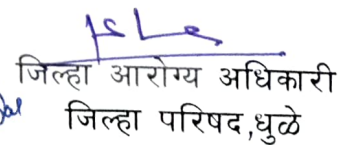 जिल्हा आरोग्य अधिकारी
जिल्हा परिषद,धुळे